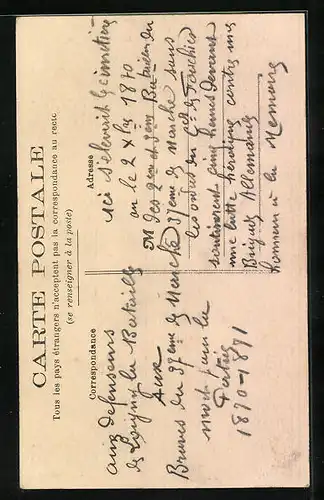 CARTE POSTALE
Tous les pays étrangers n'acceptent pas la correspondance au recto
(se renseigner à la poste)
Correspondance
Adresse
aux defenseurs
de Loigny la Bataille
Aux
Braves du 37eme de Marche
mort pour la
Patrie
1870-1871
ici s'elevait le cimetière
ou le 2 Xbre 1870
M des 2me et 3eme Bataillon du
37eme de Marche sous
les ordres du
soutinrent cinq heures devant
une lutte héroique contre une
Brigade Allemande
Honneur à la Memoire